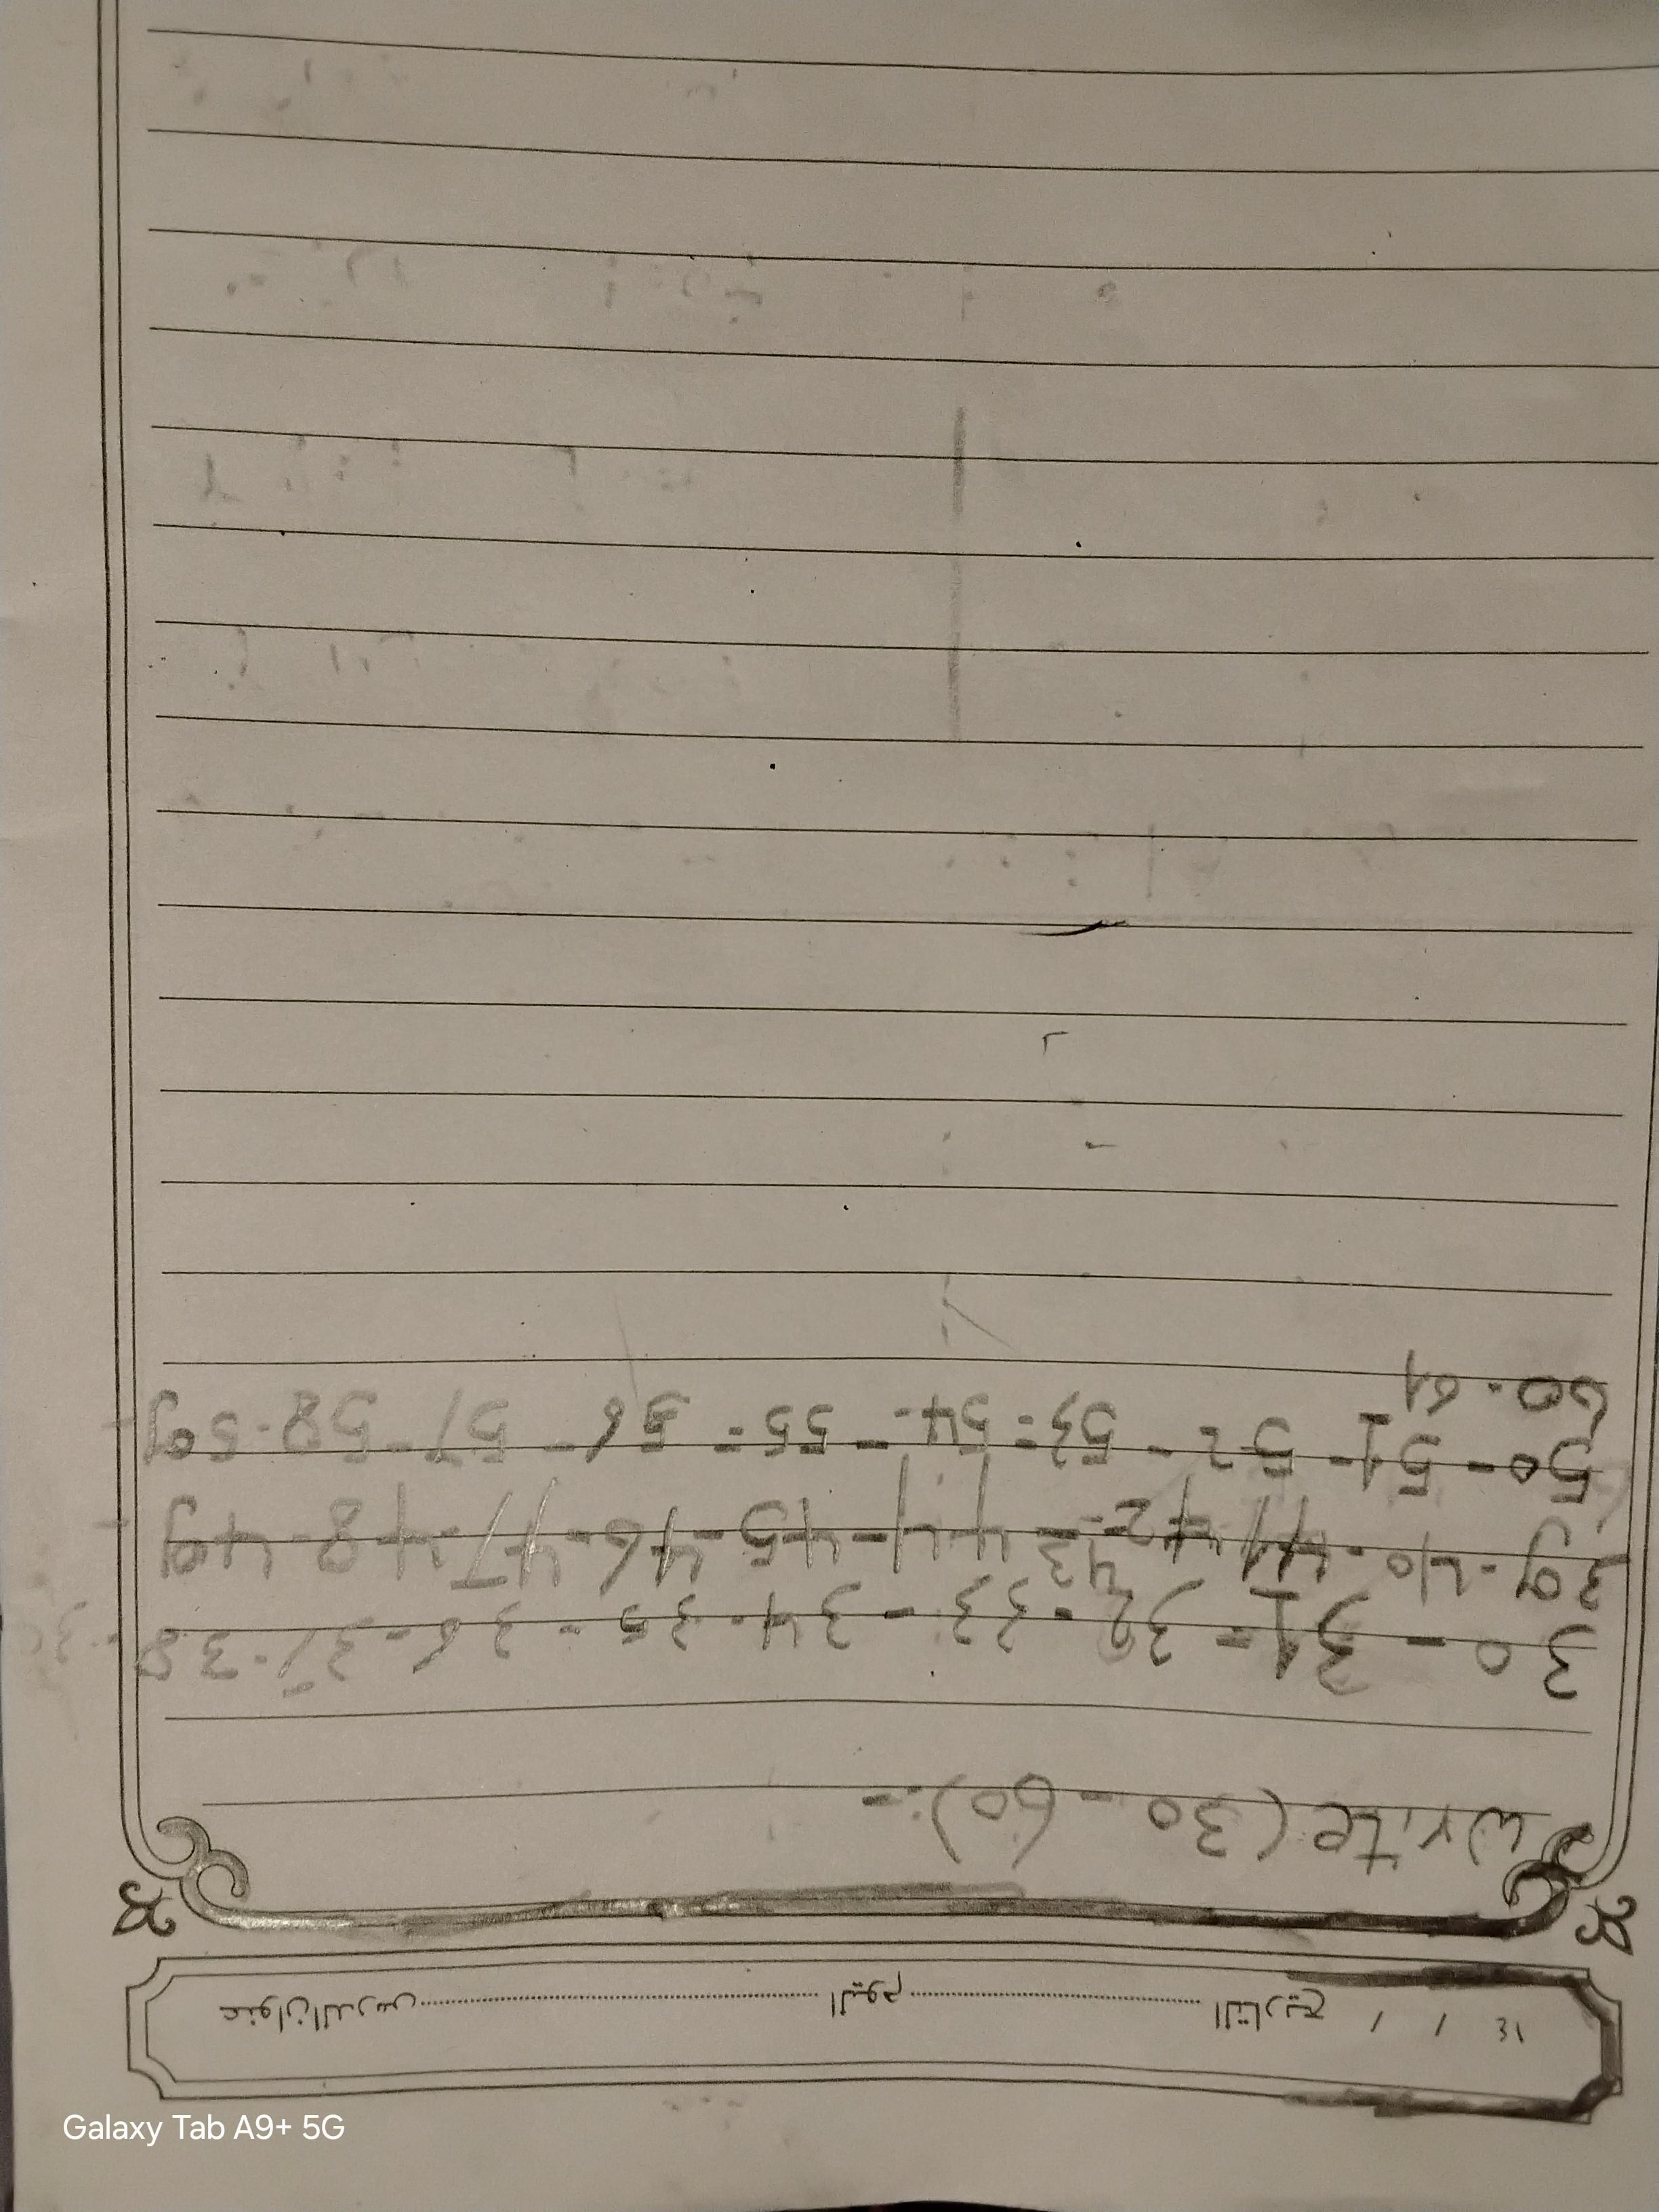 عنوان الدرس اليوم التاريخ / / ١٤
write (30 - 60):-
30 - 31 - 32 - 33 - 34 - 35 - 36 - 37 - 38
39 - 40 - 41 - 42 - 43 - 44 - 45 - 46 - 47 - 48 - 49
50 - 51 - 52 - 53 - 54 - 55 - 56 - 57 - 58 - 59
60 - 61
Galaxy Tab A9+ 5G